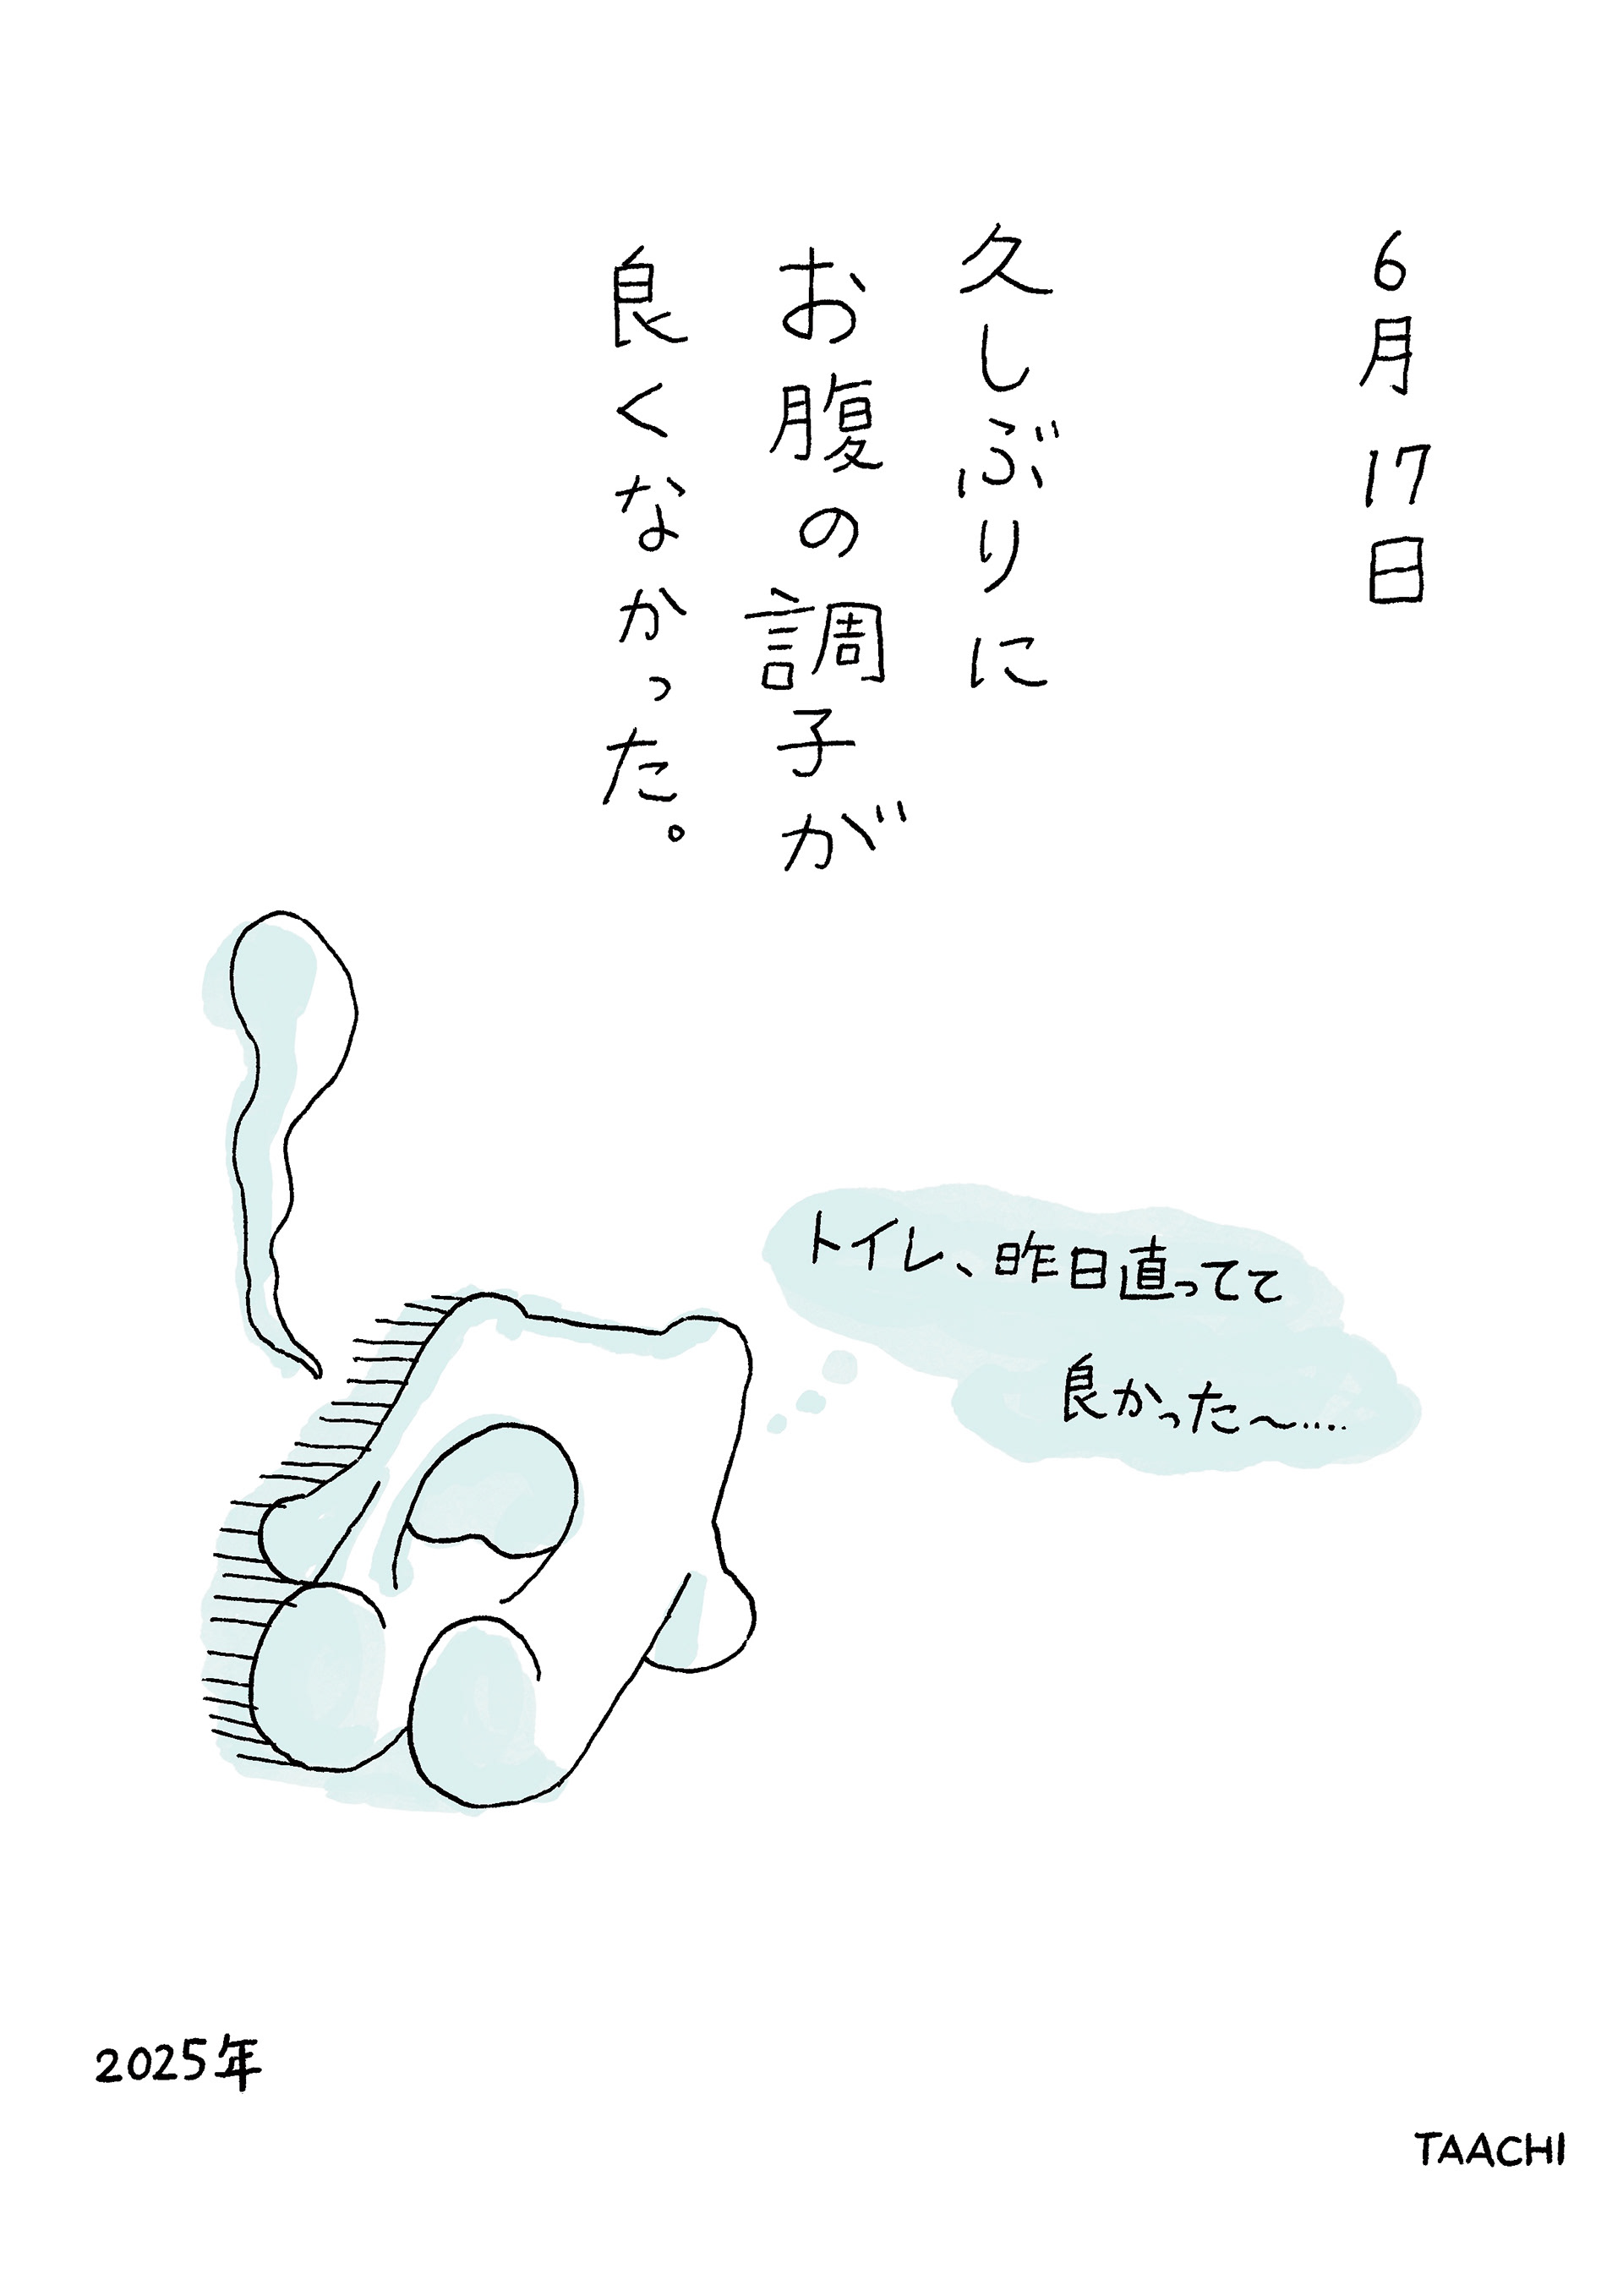 6月17日
久しぶりに
お腹の調子が
良くなかった。
トイレ、昨日直ってて
良かった〜....
2025年
TAACHI